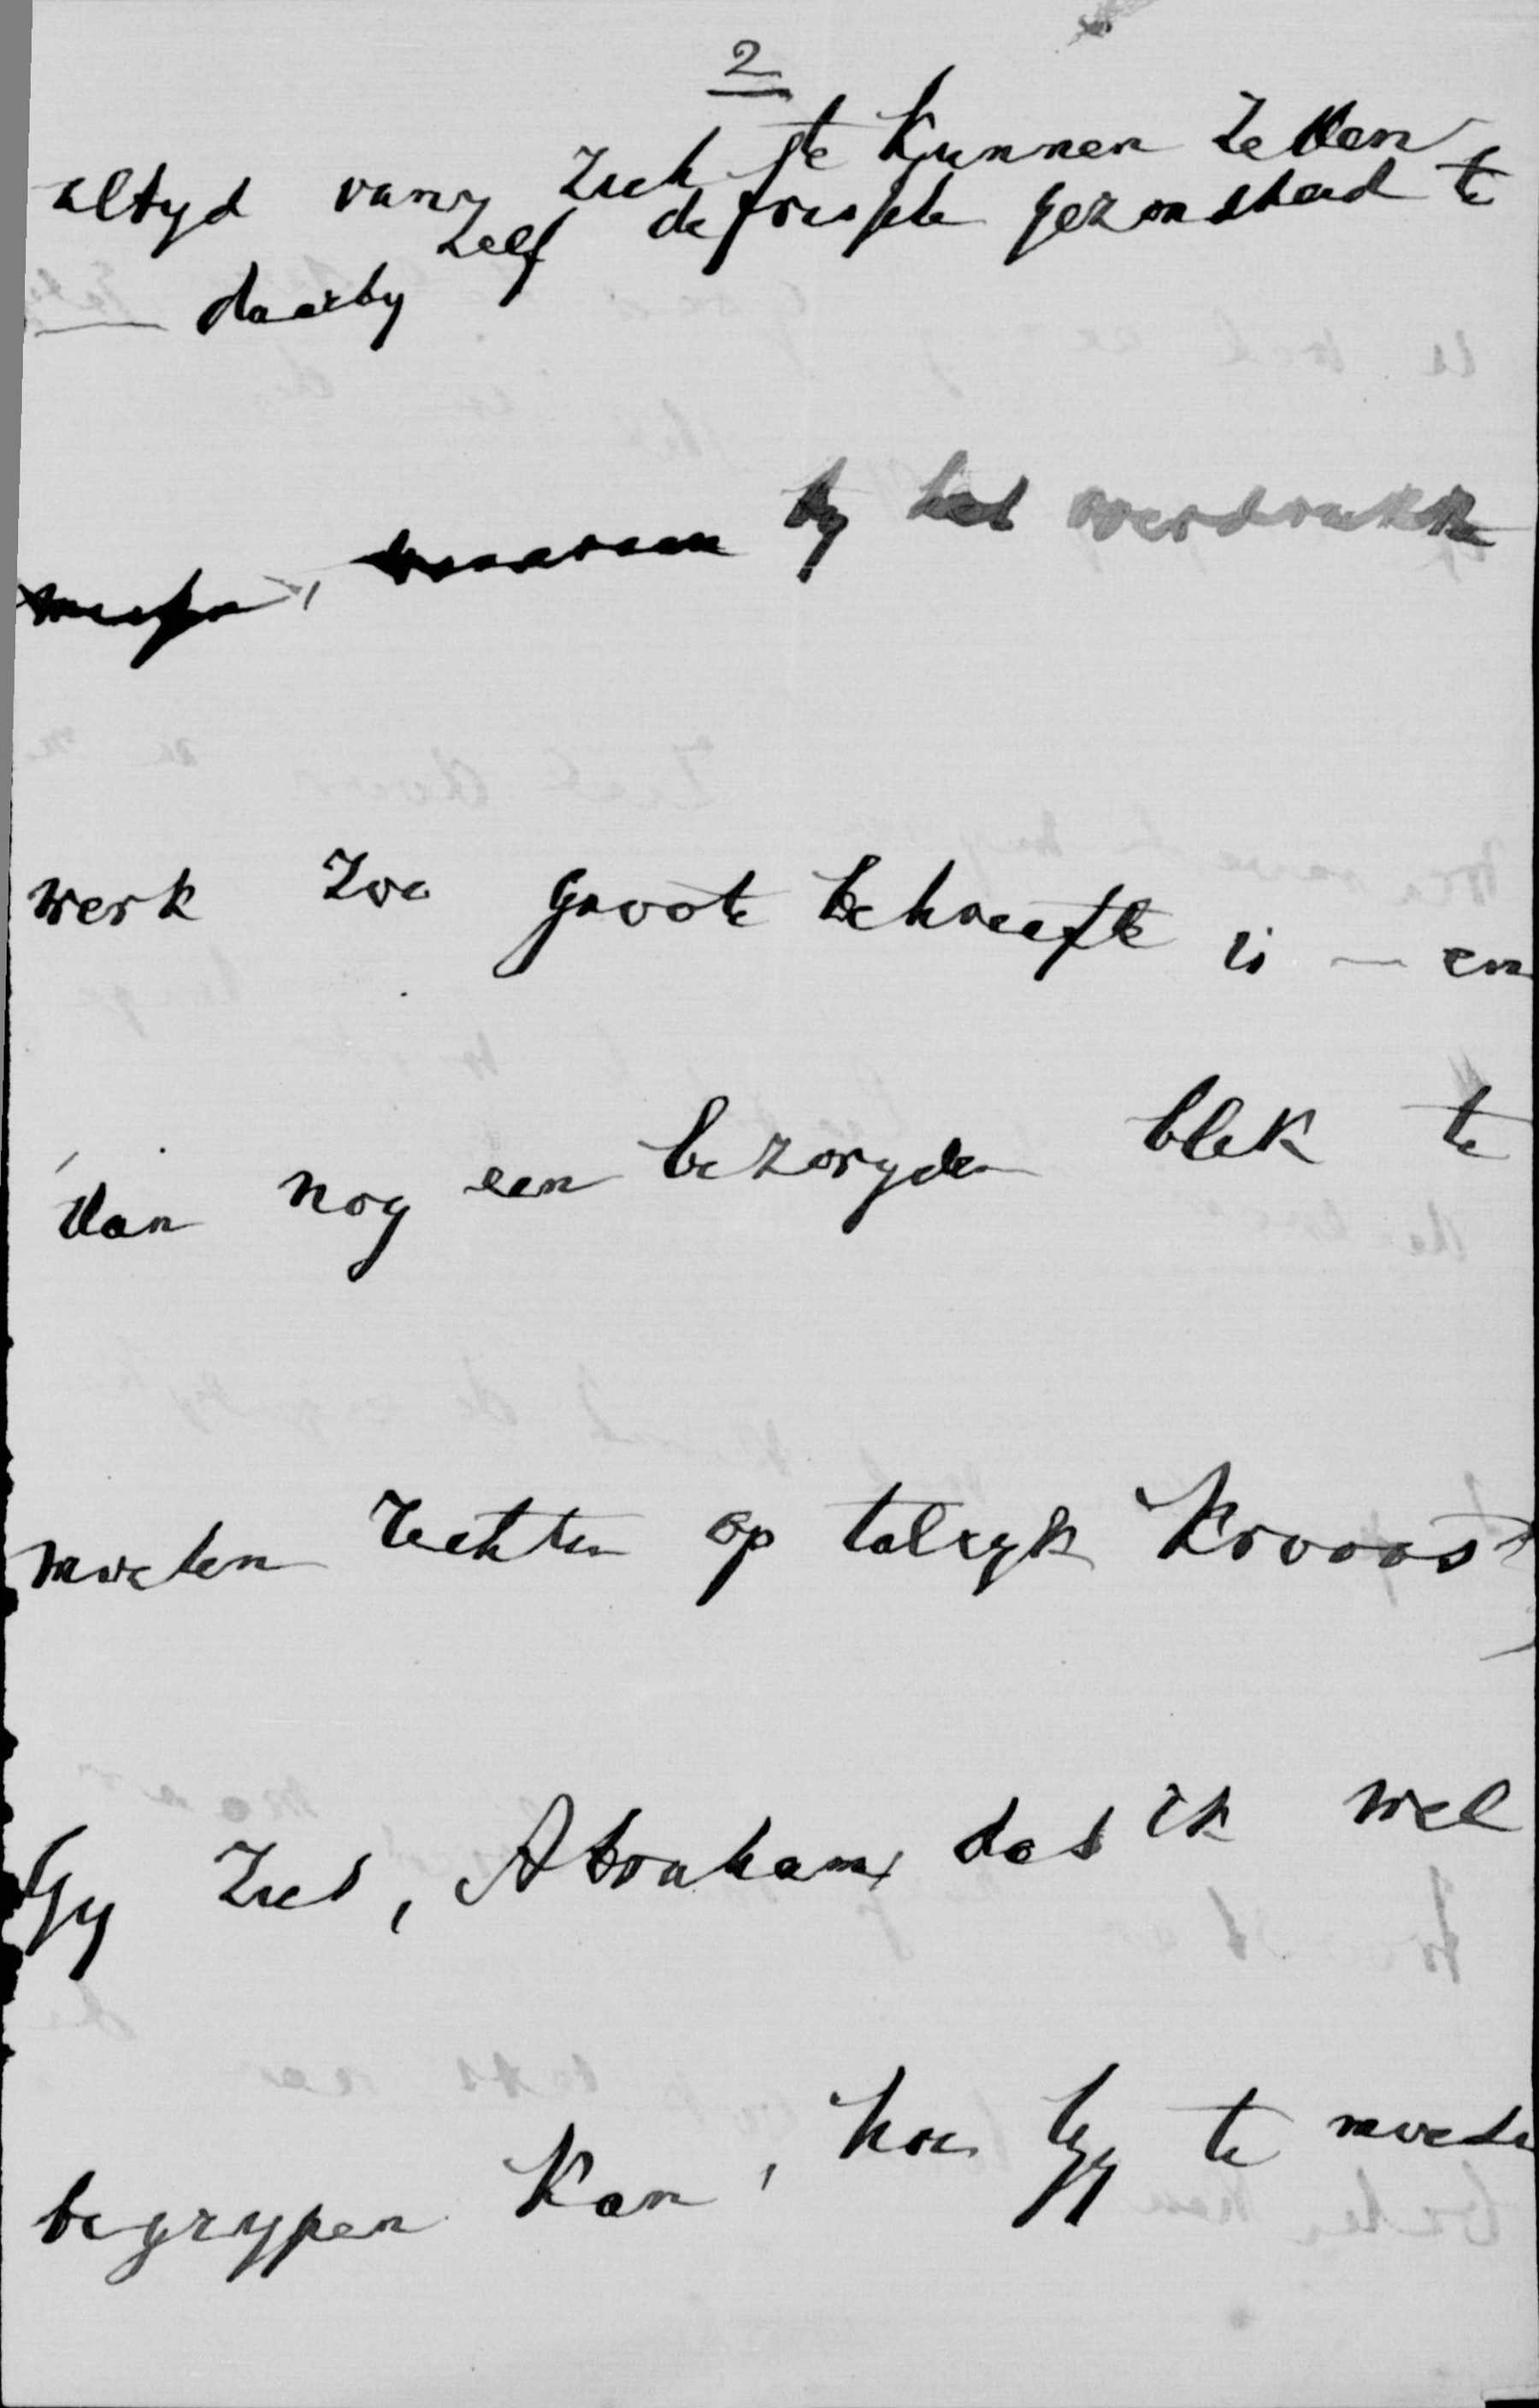 2
altyd van zich te kunnen zetten
zelf de frissche gezondheid te
daarby
, by het overdrukke
werk zoo groote behoefte is — en
dan nog een bezorgden blik te
moeten rechten op talryk kroost,
Gy ziet, Abraham, dat ik wel
begrypen kan, hoe gy te moede